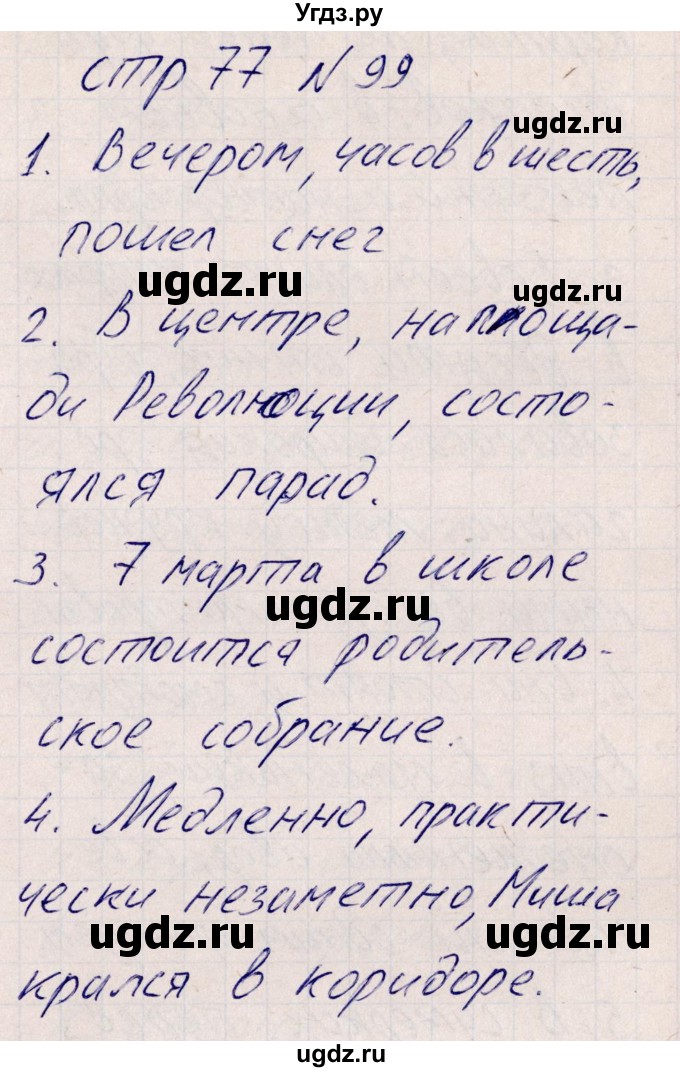 Угдз.ру
стр 77 № 99
ugdz.ru
1. Вечером, часов в шесть,
пошел снег
ugdz.ru
ugdz.ru
2. В центре, на площа-
ди Революции, состо-
ялся парад.
3. 7 марта в школе
ugdz.ru
состоится родитель-
ское собрание.
4. Медленно, практи-
чески незаметно, Миша
ugdz.ru
ugdz.ru
крался в коридоре.
ugdz.ru